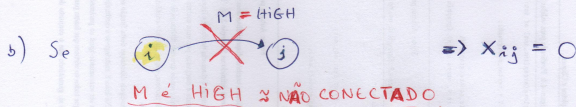 M = HiGH
b) Se i j => Xij = 0
M é HiGH ≈ NÃO CONECTADO